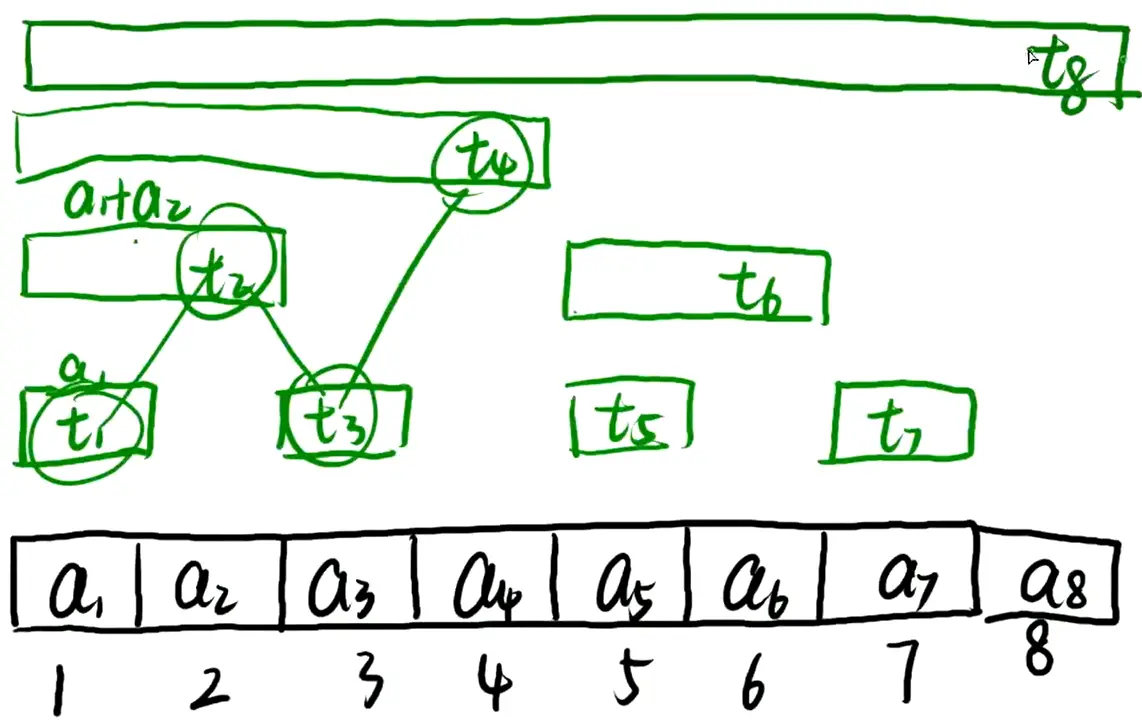 t8
t4
a1+a2
t2 t6
a1
t1 t3 t5 t7
a1 a2 a3 a4 a5 a6 a7 a8
1 2 3 4 5 6 7 8